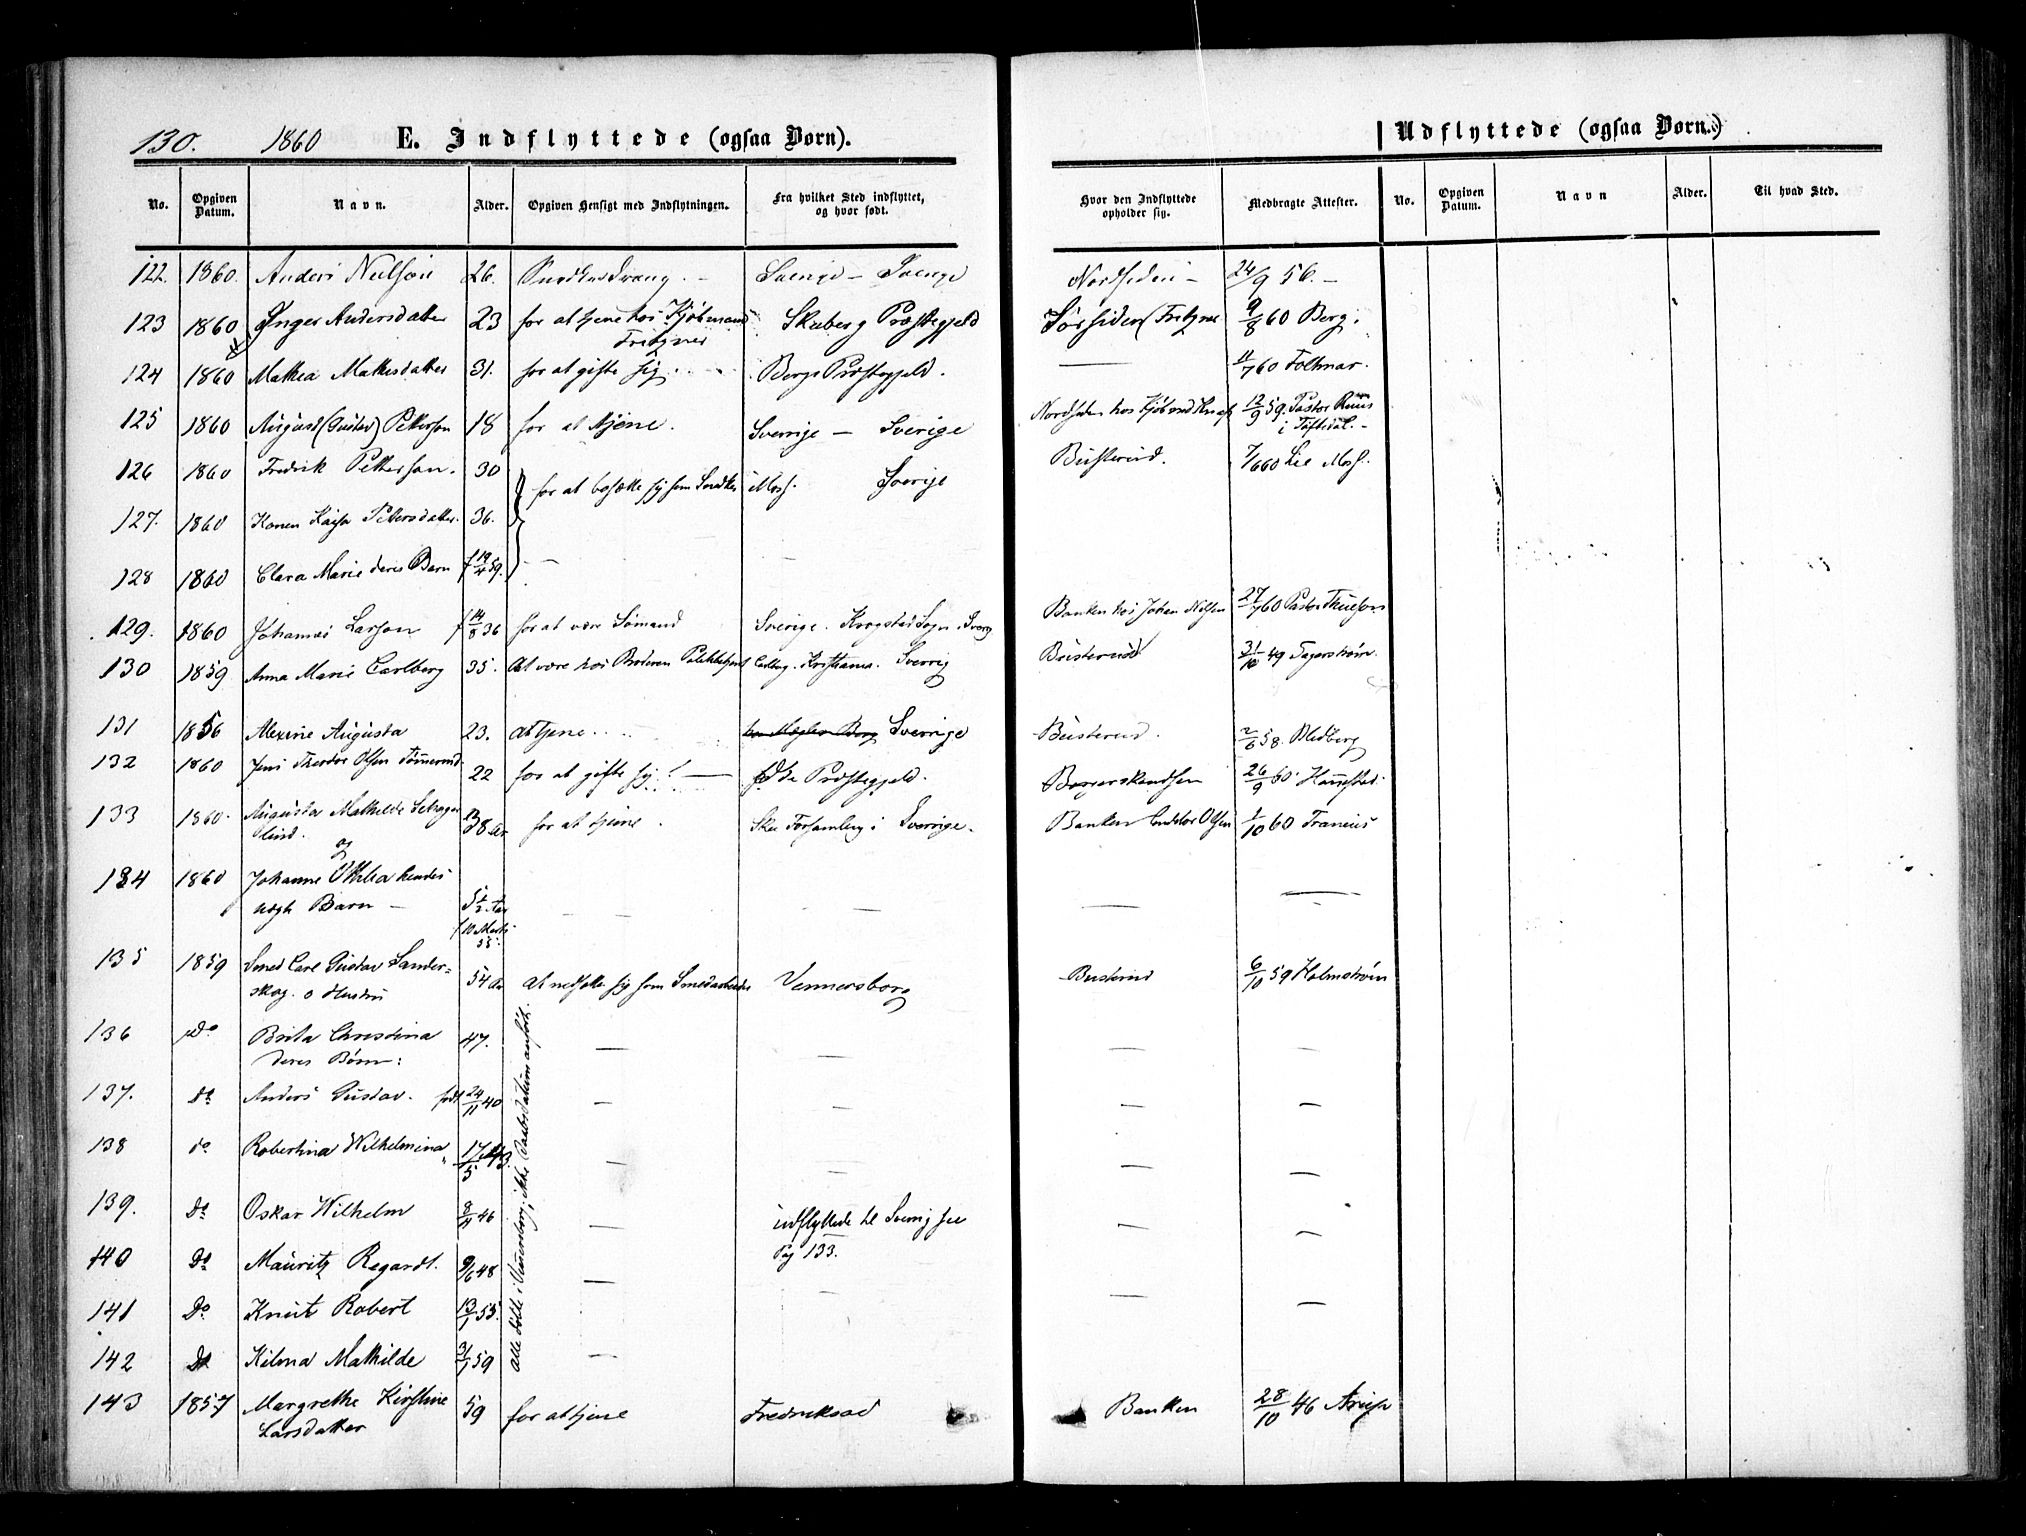 130. 1860 E. Indflyttede (ogsaa Børn). Udflyttede (ogsaa Børn.)
No. Opgiven Datum. Navn. Alder. Opgiven Hensigt med Indflytningen. Fra hvilket Sted indflyttet, og hvor født. Hvor den Indflyttede opholder sig. Medbragte Attester. No. Opgiven Datum. Navn Alder. Til hvad Sted.
122. 1860. Anders Nielsen 26. Snedkersvang. - Sverige - Sverige Nordsiden - 24/9 56. -
123 1860 Inger Andersdatter 23 for at tjene hos Kjøbmand Skeberg Præstegjeld Sørsiden (Fritzner 9/8 60 Berg.
Fritzner
124 1860 Mathea Mathisdatter 31. for at gifte sig. Bergs Præstegjeld. — 11/7 60 Foltmar.
125 1860 August (Gustav) Peterson 18 for at tjene. Sverrige - Sverige Nordsiden hos Kjøbmd 12/9 59. Pastor Ruus
i Töftedal. -
126 1860 Fredrik Petterson. 30 for at bosætte sig som Snedker Moss. Sverige Busterud. 7/6 60 Lie Moss.
127. 1860 Konen Kajsa Petersdatter. 36.
128 1860 Clara Marie deres Barn f 19/4 59. —
129. 1860 Johannes Larson f 14/8 36 for at være Sømand Sverige. Krogstad Sogn. Sverig Banken hos Johan Nilsen 27/7 60 Pastor
130 1859 Anna Marie Carlberg 35. at være hos Broderen Carlberg. Kristiania. Sverrig Busterud 31/10 49 Fagerström.
131 1856 Alexine Augusta 23. at tjene Sverrige Busterud. 2/6 58. Bledberg
132 1860 Jens Theodor Olsen Tømmerud 22 for at gifte sig. — Præstegjeld. 26/9 60 Hannestad.
133 1860. Augusta Mathilde 28 Aar for at tjene. Forsamling i Sverrige. Banken Olsen 1/10 60 Francius
lind. og
134 1860 Johanne Othilia hendes
uægte Barn - 5½ Aar — — — —
f 10 Marts
55.
135 1859 Smed Carl Gustav Sander=
skog. o Hustru 54 Aar at nedsætte sig som Smedarbeider Vennersborg Busterud 6/10 59 Holmström
136 Do Brita Christina 47. — — — —
deres Børn:
137. Do Anders Gustav. født 24/11 40 — — — —
138 do Robertina Wilhelmina 17/5 43. — — — —
139. Do Oskar Wilhelm 8/11 46 — udflyttede til Sverrig see — —
140 Do Mauritz Regardt. 9/6 48 — Pag 133. — —
141 Do Knut Robert 13/1 55. — — —
142 Do Hilma Mathilde 31/1 59 —
alle fødte i Vennersborg; ikke Daabsdatum anført.
143 1857 Margrethe Kirstine 59 for at tjene Fredrikstad Banken 28/10 46 Arup
Larsdatter